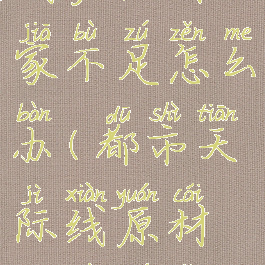 jiā bù zú zěn me
家不足怎么
bàn dū shì tiān
办(都市天
jì xiàn yuán cái
际线原材